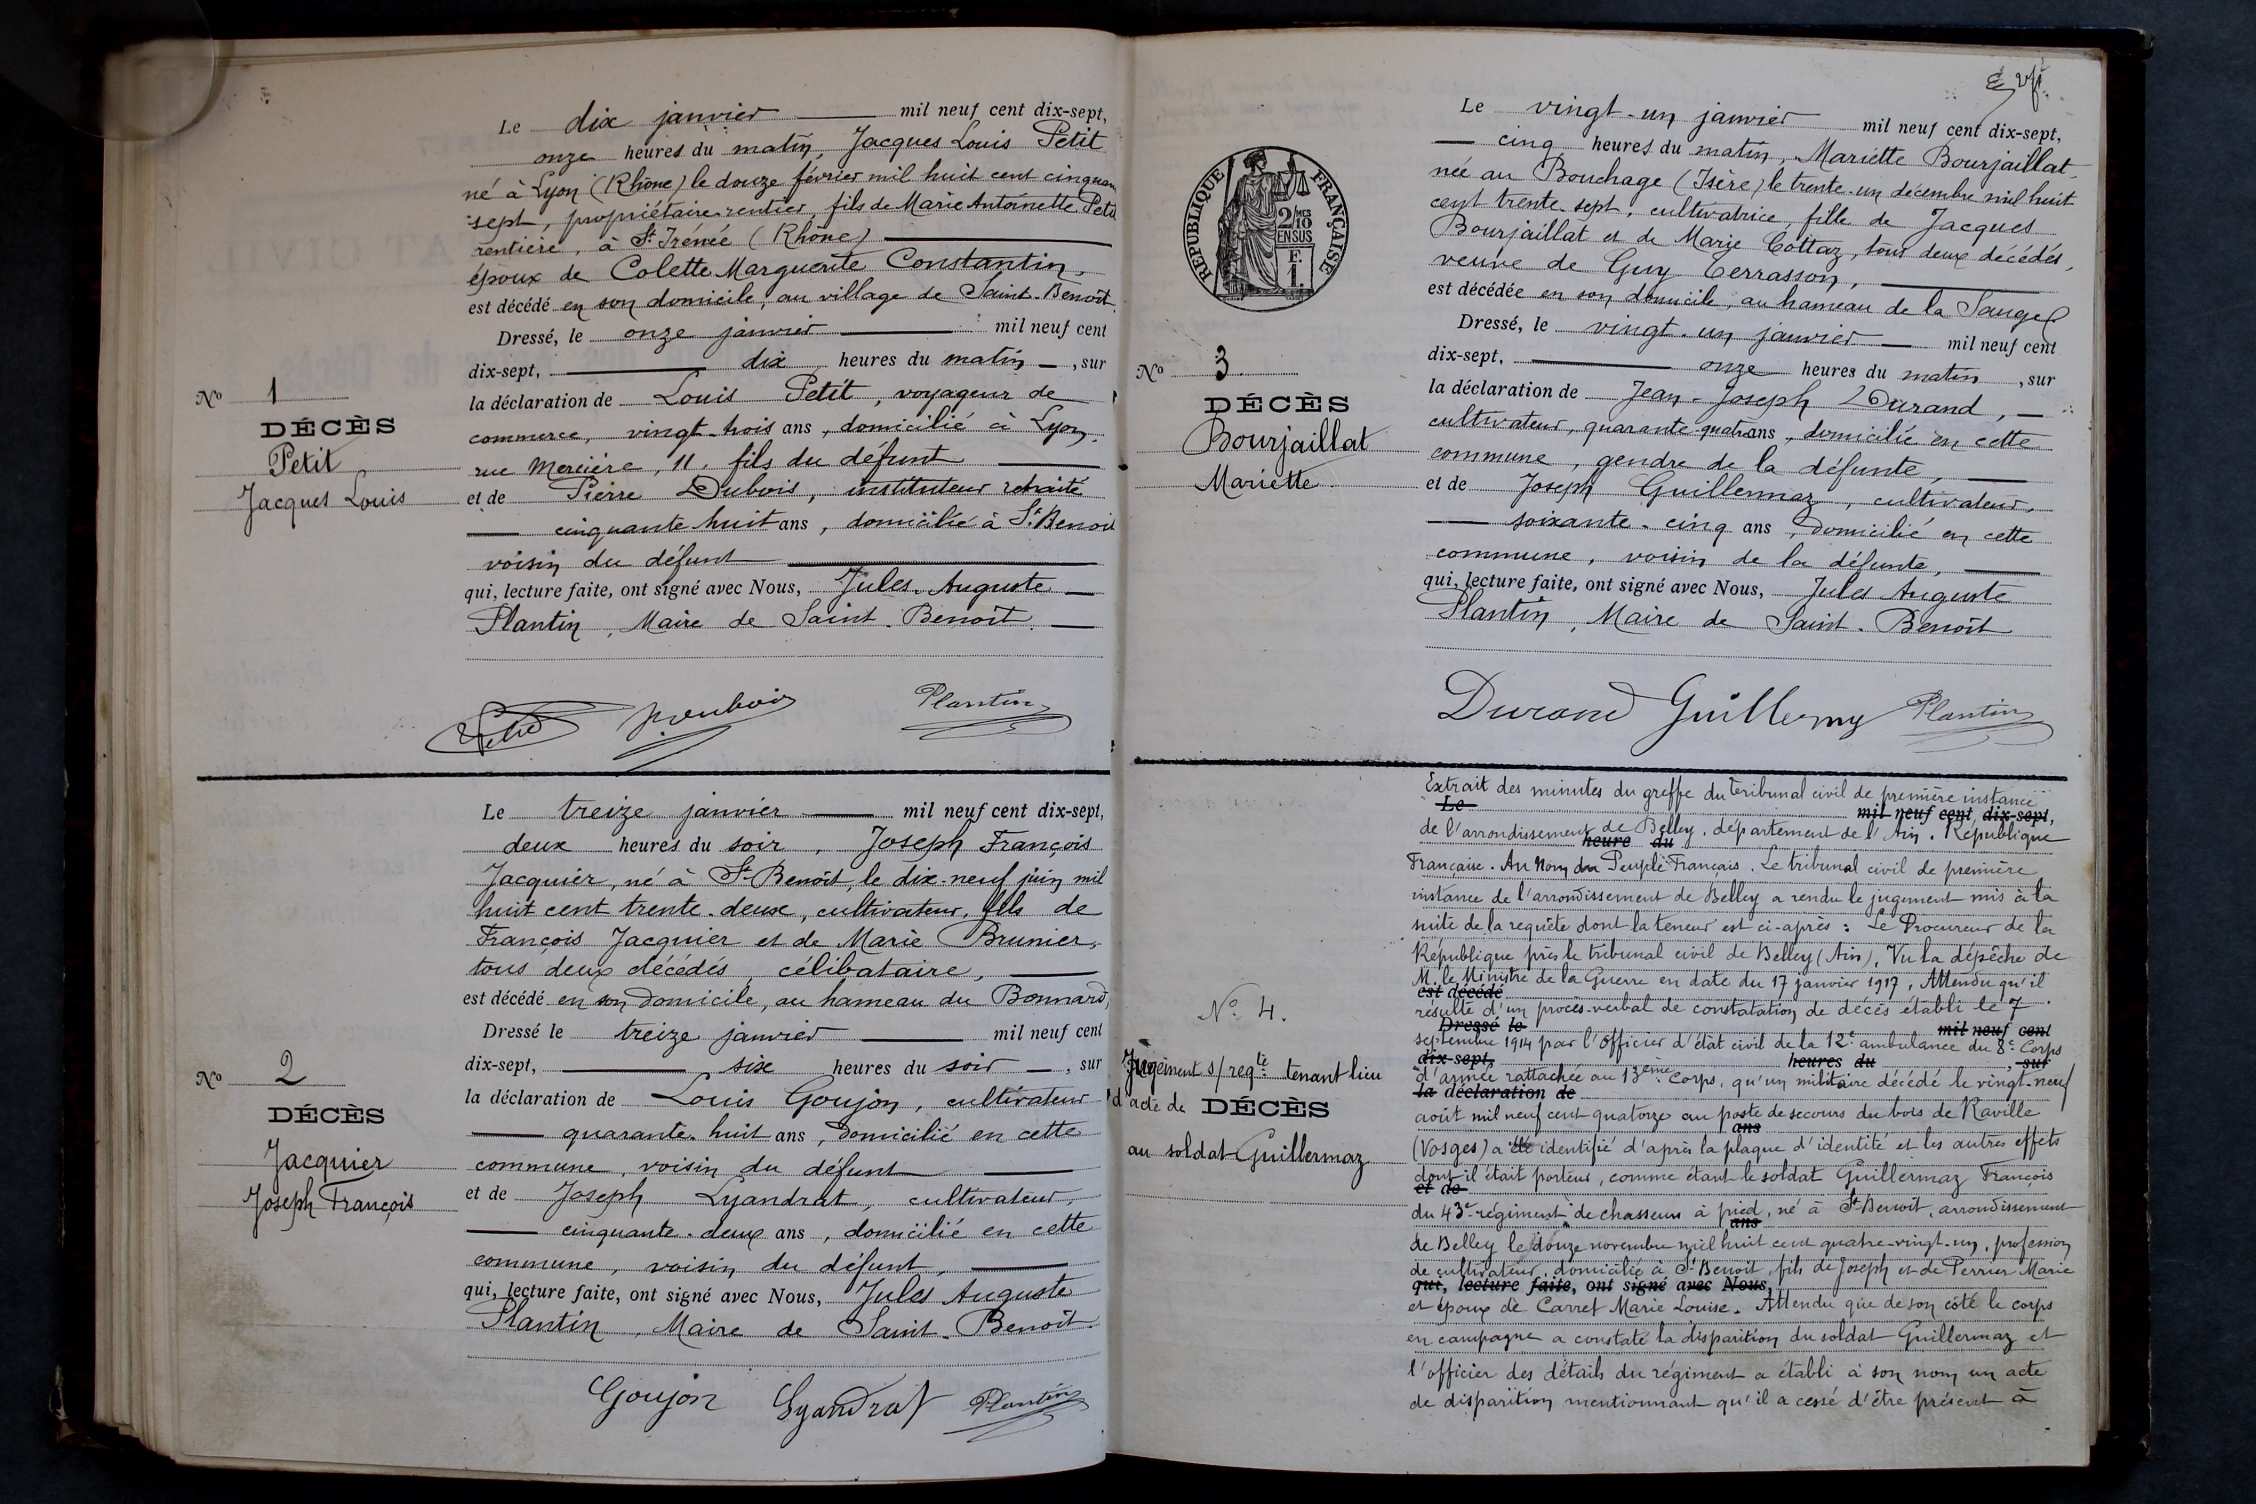 Le dix janvier mil neuf cent dix-sept,
onze heures du matin, Jacques Louis Petit
né à Lyon (Rhône) le douze février mil huit cent cinquan
sept, propriétaire-rentier, fils de Marie Antoinette Petit
rentière, à St Irénée (Rhône)
époux de Colette Marguerite Constantin,
est décédé en son domicile, au village de Saint-Benoît.
Dressé, le onze janvier mil neuf cent
dix-sept, dix heures du matin, sur
la déclaration de Louis Petit, voyageur de
commerce, vingt-trois ans, domicilié à Lyon,
rue Mercière, 11, fils du défunt
et de Pierre Dubois, instituteur retraité
cinquante huit ans, domicilié à St Benoit
voisin du défunt
qui, lecture faite, ont signé avec Nous, Jules Auguste
Plantin, Maire de Saint-Benoît.
No 1
DÉCÈS
Petit
Jacques Louis
Petit Dubois Plantin
Le treize janvier mil neuf cent dix-sept,
deux heures du soir, Joseph François
Jacquier, né à St Benoît, le dix-neuf juin mil
huit cent trente-deux, cultivateur, fils de
François Jacquier et de Marie Brunier,
tous deux décédés, célibataire,
est décédé en son domicile, au hameau du Bonnard,
Dressé le treize janvier mil neuf cent
dix-sept, six heures du soir, sur
la déclaration de Louis Goujon, cultivateur
quarante-huit ans, domicilié en cette
commune, voisin du défunt
et de Joseph Lyandrat, cultivateur,
cinquante-deux ans, domicilié en cette
commune, voisin du défunt,
qui, lecture faite, ont signé avec Nous, Jules Auguste
Plantin, Maire de Saint-Benoît.
No 2
DÉCÈS
Jacquier
Joseph François
Goujon Lyandrat Plantin
RÉPUBLIQUE FRANÇAISE
2/10 MES
EN SUS
F.
1.
Le vingt-un janvier mil neuf cent dix-sept,
cinq heures du matin, Mariette Bourjaillat
née au Bouchage (Isère) le trente-un décembre mil huit
cent trente-sept, cultivatrice, fille de Jacques
Bourjaillat et de Marie Cottaz, tous deux décédés,
veuve de Guy Terrasson,
est décédée en son domicile, au hameau de la Sauge
Dressé, le vingt-un janvier mil neuf cent
dix-sept, onze heures du matin, sur
la déclaration de Jean-Joseph Durand,
cultivateur, quarante-quatre ans, domicilié en cette
commune, gendre de la défunte,
et de Joseph Guillermaz, cultivateur,
soixante-cinq ans, domicilié en cette
commune, voisin de la défunte,
qui, lecture faite, ont signé avec Nous, Jules Auguste
Plantin, Maire de Saint-Benoît
No 3
DÉCÈS
Bourjaillat
Mariette
Durand Guillermaz Plantin
No 4.
Jugement s/ reqte tenant lieu
d'acte de DÉCÈS
au soldat Guillermaz
Extrait des minutes du greffe du tribunal civil de première instance
Le mil neuf cent dix-sept,
de l'arrondissement de Belley, département de l'Ain. République
heure du
Française. Au Nom du Peuple Français. Le tribunal civil de première
instance de l'arrondissement de Belley a rendu le jugement mis à la
suite de la requête dont la teneur est ci-après : Le Procureur de la
République près le tribunal civil de Belley (Ain), Vu la dépêche de
M. le Ministre de la Guerre en date du 17 janvier 1917, Attendu qu'il
est décédé
résulte d'un procès-verbal de constatation de décès établi le 7
Dressé le mil neuf cent
septembre 1914 par l'officier d'état civil de la 12e ambulance du 8e Corps
dix-sept, heures du , sur
d'armée rattachée au 13ème Corps, qu'un militaire décédé le vingt-neuf
la déclaration de
août mil neuf cent quatorze au poste de secours du bois de Raville
ans
(Vosges) a été identifié d'après la plaque d'identité et les autres effets
dont il était porteur, comme étant le soldat Guillermaz François
et de
du 43e régiment de chasseurs à pied, né à St Benoît, arrondissement
ans
de Belley le douze novembre mil huit cent quatre-vingt-un, profession
de cultivateur, domicilié à St Benoit, fils de Joseph et de Perrier Marie
qui, lecture faite, ont signé avec Nous,
et époux de Carret Marie Louise. Attendu que de son côté le corps
en campagne a constaté la disparition du soldat Guillermaz et
l'officier des détails du régiment a établi à son nom un acte
de disparition mentionnant qu'il a cessé d'être présent à